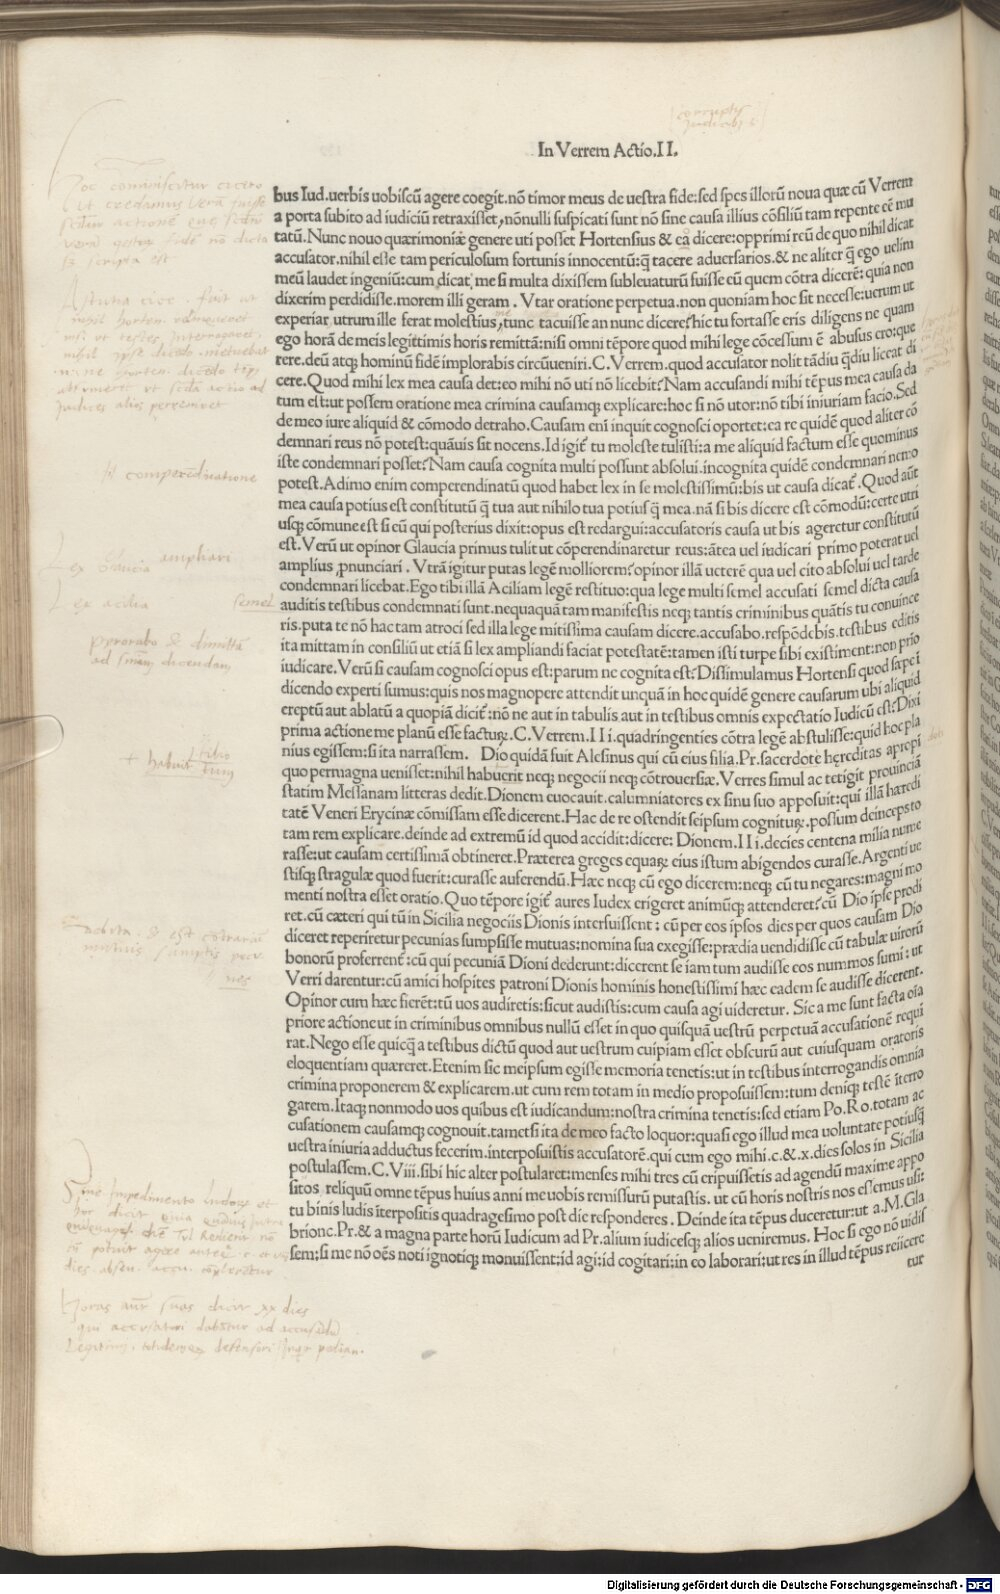 In Verrem Actio.II.
bus Iud.uerbis uobiscũ agere coegit.nõ timor meus de uestra fide:sed spes illorũ noua quæ cũ Verrem
a porta subito ad iudiciũ retraxisset,nõnulli suspicati sunt nõ sine causa illius cõsiliũ tam repente eẽ mu
tatũ.Nunc nouo quærimoniæ genere uti posset Hortensius & ea dicere:opprimi reũ de quo nihil dicat
accusator.nihil esse tam periculosum fortunis innocentũ:q̃ tacere aduersarios.& ne aliter q̃ ego uelim
meũ laudet ingeniũ:cum dicat me si multa dixissem subleuaturũ fuisse eũ quem cõtra dicerẽ:quia non
dixerim perdidisse.morem illi geram. Vtar oratione perpetua.non quoniam hoc sit necesse:uerum ut
experiar utrum ille ferat molestius,tunc tacuisse an nunc dicere?hic tu fortasse eris diligens ne quam
ego horã de meis legittimis horis remittã:nisi omni tẽpore quod mihi lege cõcessum ẽ abusus ero:que
rere.deũ atq; hominũ fidẽ implorabis circũueniri.C.Verrem.quod accusator nolit tãdiu q̃diu liceat di
cere.Quod mihi lex mea causa det:eo mihi nõ uti nõ licebit?Nam accusandi mihi tẽpus mea causa da
tum est:ut possem oratione mea crimina causamq; explicare:hoc si nõ utor:nõ tibi iniuriam facio.Sed
de meo iure aliquid & cõmodo detraho.Causam enĩ inquit cognosci oportet:ea re quidẽ quod aliter cõ
demnari reus nõ potest:quãuis sit nocens.Id igit̃ tu moleste tulisti:a me aliquid factum esse quominus
iste condemnari posset?Nam causa cognita multi possunt absolui.incognita quidẽ condemnari nemo
potest.Adimo enim comperendinatũ quod habet lex in se molestissimũ:bis ut causa dicat̃.Quod aũt
mea causa potius est constitutũ q̃ tua aut nihilo tua potius q̃ mea.nã si bis dicere est cõmodũ:certe utri
usq; cõmune est si eũ qui posterius dixit:opus est redargui:accusatoris causa ut bis ageretur constitutũ
est.Verũ ut opinor Glaucia primus tulit ut cõperendinaretur reus:ãtea uel iudicari primo poterat uel
amplius ,pnunciari. Vtrã igitur putas legẽ molliorem?opinor illã ueterẽ qua uel cito absolui uel tarde
condemnari licebat.Ego tibi illã Aciliam legẽ restituo:qua lege multi semel accusati semel dicta causa
auditis testibus condemnati sunt.nequaquã tam manifestis neq; tantis criminibus quãtis tu conuince
ris.puta te nõ hac tam atroci sed illa lege mitissima causam dicere.accusabo.respõdebis.testibus editis
ita mittam in consiliũ ut etiã si lex ampliandi faciat potestatẽ:tamen isti turpe sibi existiment:non prio
iudicare.Verũ si causam cognosci opus est:parum ne cognita est?Dissimulamus Hortensi quod sæpe ĩ
dicendo experti sumus:quis nos magnopere attendit unquã in hoc quidẽ genere causarum ubi aliquid
ereptũ aut ablatũ a quopiã dicit̃:nõ ne aut in tabulis aut in testibus omnis expectatio Iudicũ est?Dixi
prima actione me planũ esse facturꝝ.C.Verrem.IIi.quadringenties cõtra legẽ abstulisse:quid hoc pla
nius egissem:si ita narrassem. Dio quidã fuit Alesinus qui cũ eius filia.Pr.sacerdote hereditas a propĩ
quo permagna uenisset:nihil habuerit neq; negocii neq; cõtrouersiæ.Verres simul ac tetigit prouinciã
statim Messanam litteras dedit.Dionem euocauit.calumniatores ex sinu suo apposuit:qui illã hæredi
tatẽ Veneri Erycinæ cõmissam esse dicerent.Hac de re ostendit seipsum cogniturꝝ.possum deinceps to
tam rem explicare.deinde ad extremũ id quod accidit:dicere: Dionem.IIi.decies centena milia nume
rasse:ut causam certissimã obtineret.Præterea greges equaꝝ eius istum abigendos curasse.Argenti ue
stisq; stragulæ quod fuerit:curasse auferendũ.Hæc neq; cũ ego dicerem:neq; cũ tu negares:magni mo
menti nostra esset oratio.Quo tẽpore igit̃ aures Iudex erigeret animũq; attenderet?cũ Dio ipse prodi
ret.cũ cæteri qui tũ in Sicilia negociis Dionis interfuissent: cũ per eos ipsos dies per quos causam Dio
diceret reperiretur pecunias sumpsisse mutuas:nomina sua exegisse:prædia uendidisse cũ tabulæ uirorũ
bonorũ proferrent̃:cũ qui pecuniã Dioni dederunt:dicerent se iam tum audisse eos nummos sumi:ut
Verri darentur:cũ amici hospites patroni Dionis hominis honestissimi hæc eadem se audisse dicerent.
Opinor cum hæc fierẽt:tũ uos audiretis:sicut audistis:cum causa agi uideretur. Sic a me sunt facta oĩa
priore actione ut in criminibus omnibus nullũ esset in quo quisquã uestrũ perpetuã accusationẽ requi
rat.Nego esse quicq̃ a testibus dictũ quod aut uestrum cuipiam esset obscurũ aut cuiusquam oratoris
eloquentiam quæreret.Etenim sic meipsum egisse memoria tenetis:ut in testibus interrogandis omnia
crimina proponerem & explicarem.ut cum rem totam in medio proposuissem:tum deniq; testẽ ĩterro
garem.Itaq; nonmodo uos quibus est iudicandum:nostra crimina tenetis:sed etiam Po.Ro.totam ac
cusationem causamq; cognouit.tametsi ita de meo facto loquor:quasi ego illud mea uoluntate potiusq̃
uestra iniuria adductus fecerim.interposuistis accusatorẽ.qui cum ego mihi.c.&.x.dies solos in Sicilia
postulassem.C.Viii.sibi hic alter postularet:menses mihi tres cũ eripuissetis ad agendũ maxime appo
sitos reliquũ omne tẽpus huius anni me uobis remissurũ putastis. ut cũ horis nostris nos essemus usi:
tu binis ludis iterpositis quadragesimo post die responderes. Deinde ita tẽpus duceretur:ut a.M.Gla
brione.Pr.& a magna parte horũ Iudicum ad Pr.alium iudicesq; alios ueniremus. Hoc si ego nõ uidis
sem:si me nõ oẽs noti ignotiq; monuissent:id agi:id cogitari:in eo laborari:ut res in illud tẽpus reiicere
tur
ampliari
ex Glaucia
ex acilia
semel
Digitalisierung gefördert durch die Deutsche Forschungsgemeinschaft - DFG